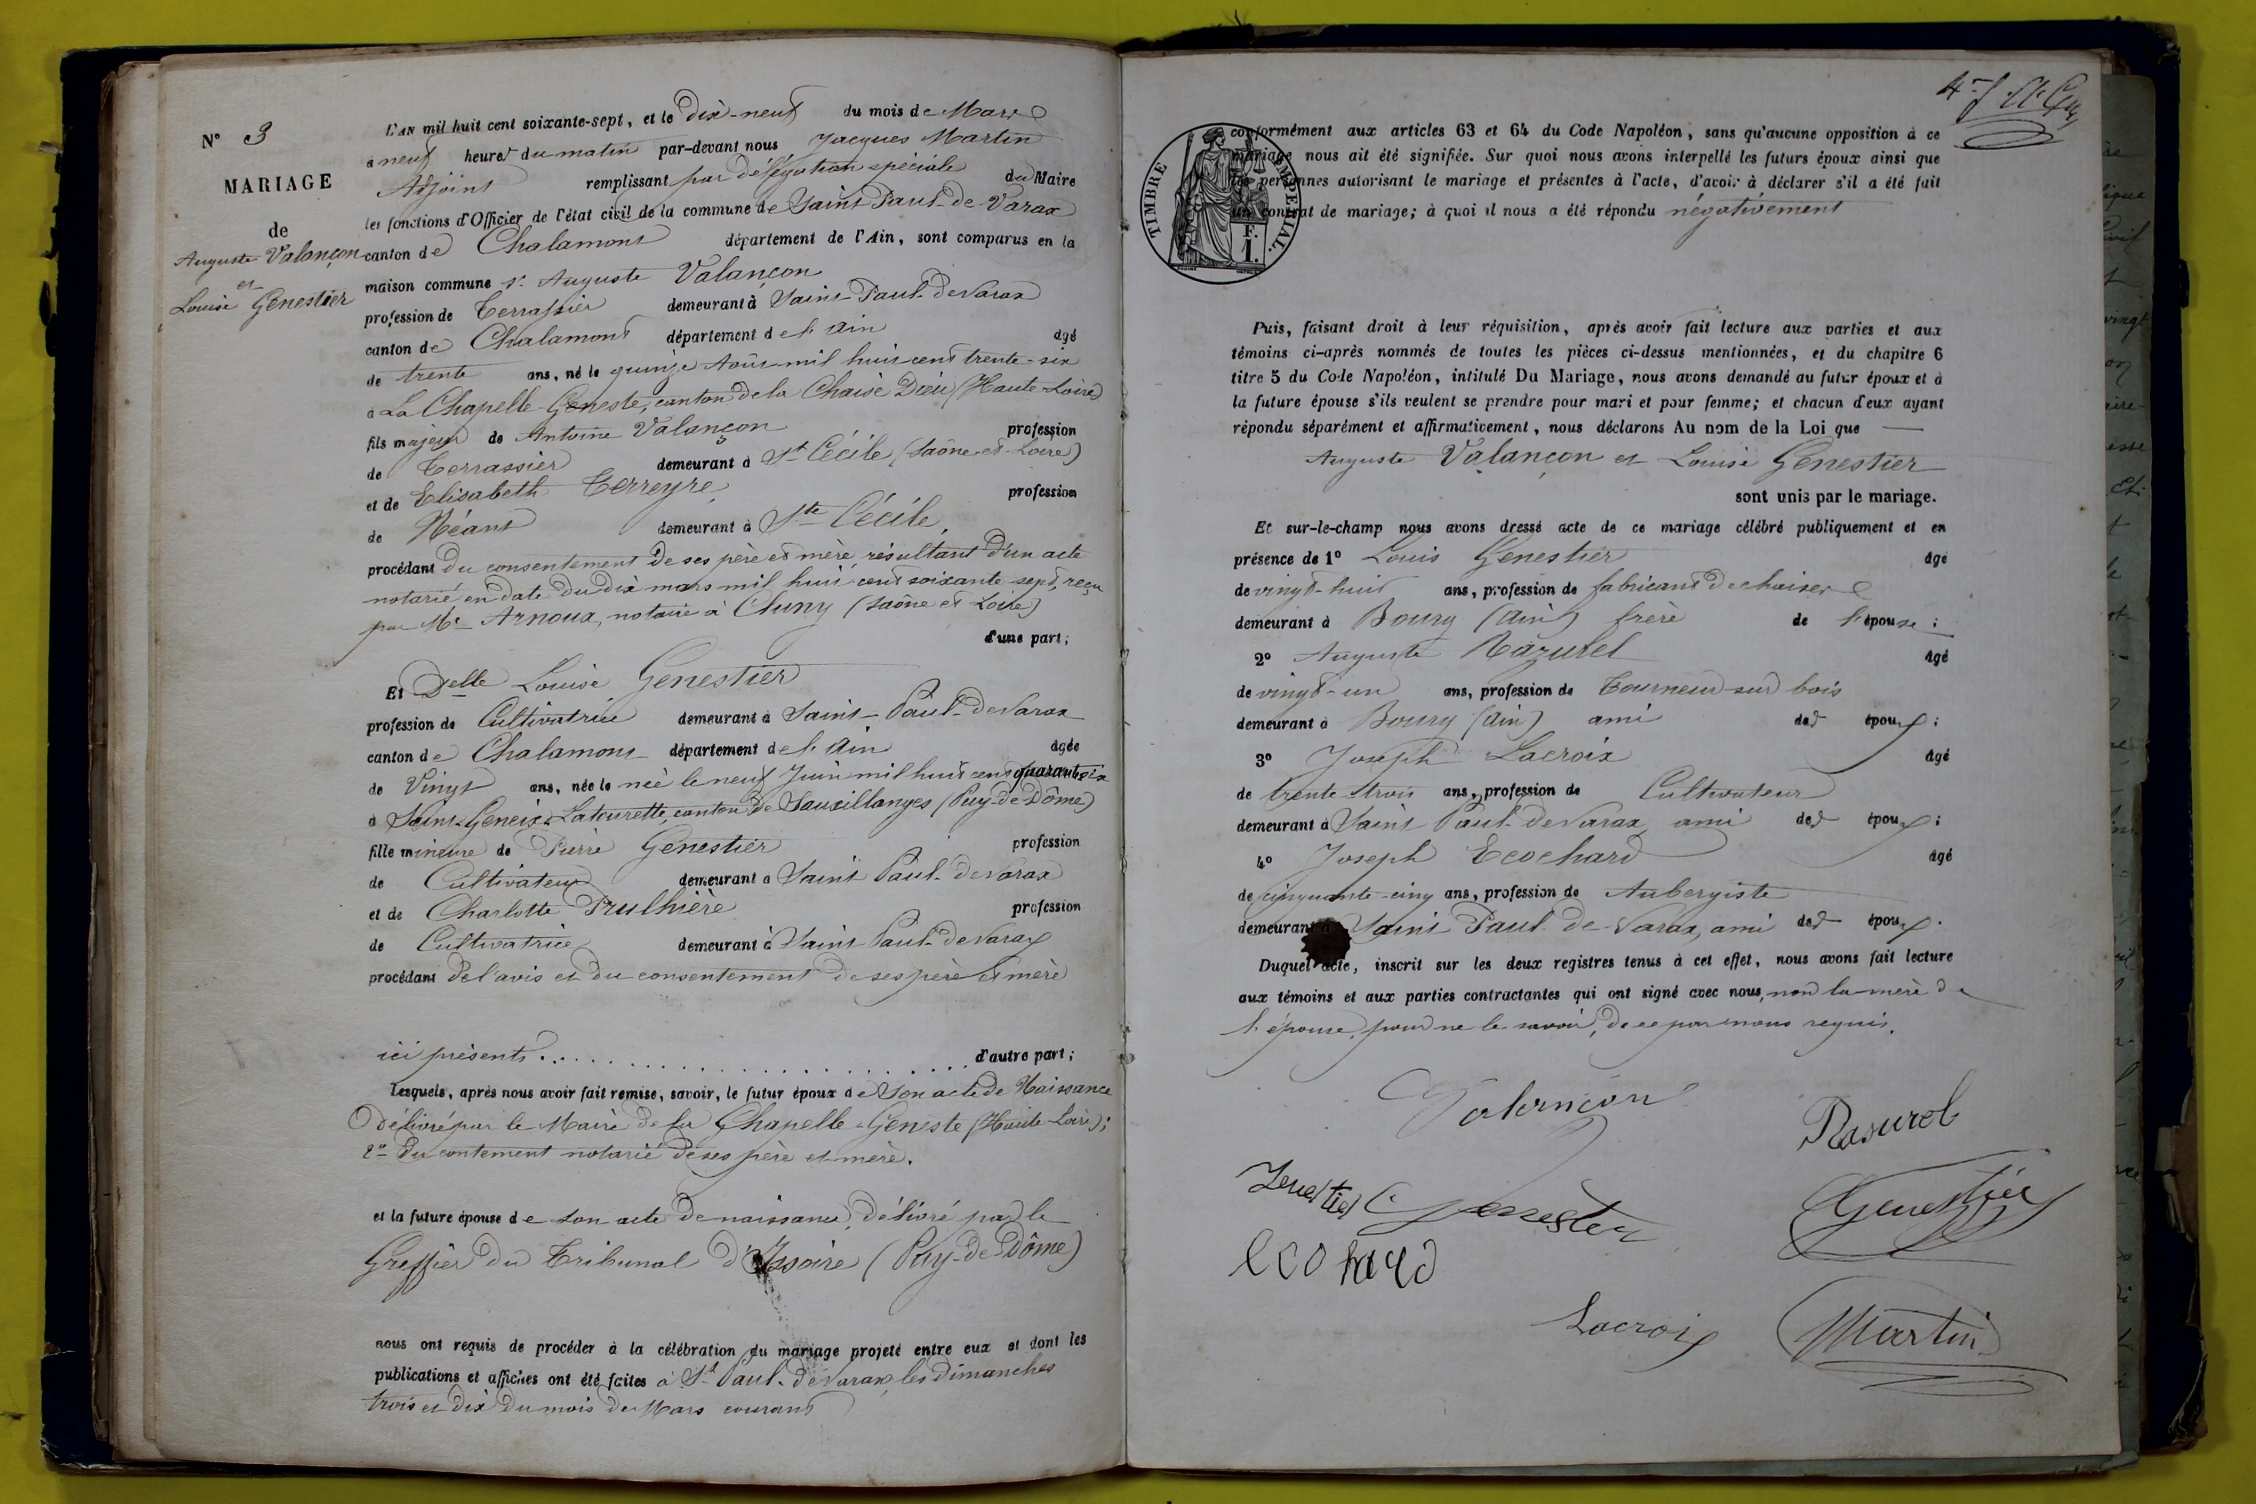 N° 3
MARIAGE
de
Auguste Valançon
et
Louise Genestier
L'AN mil huit cent soixante-sept, et le dix-neuf du mois de Mars
à neuf heures du matin par-devant nous Jacques Martin
Adjoint remplissant par délégation spéciale du Maire
les fonctions d'Officier de l'état civil de la commune de Saint Paul-de-Varax
canton de Chalamont département de l'Ain, sont comparus en la
maison commune sr Auguste Valançon
profession de Terrassier demeurant à Saint-Paul-de Varax
canton de Chalamont département de l'Ain agé
de trente ans, né le quinze Août mil huit cent trente-six
à La Chapelle-Geneste, canton de la Chaise Dieu (Haute-Loire)
fils majeur de Antoine Valançon profession
de Terrassier demeurant à St Cécile (Saône-et-Loire)
et de Elisabeth Terreyre profession
de Néant demeurant à Ste Cécile,
procédant du consentement de ses père et mère, résultant d'un acte
notarié en date du dix mars mil huit cent soixante-sept, reçu
par Me Arnoux, notaire à Cluny (Saône et Loire)
d'une part;
Et Delle Louise Genestier
profession de Cultivatrice demeurant à Saint-Paul-de Varax
canton de Chalamont département de l'Ain agée
de Vingt ans, née le née le neuf Juin mil huit cent quarante six
à Saint-Geneix-Latourette, canton de Sauxillanges (Puy-de-Dôme)
fille mineure de Pierre Genestier profession
de Cultivateur demeurant à Saint Paul-de Varax
et de Charlotte Prulhière profession
de Cultivatrice demeurant à Saint-Paul-de Varax
procédant de l'avis et du consentement de ses père et mère
ici présents. . . . . . . . . . . . . . . . . . . . . . d'autre part;
Lesquels, après nous avoir fait remise, savoir, le futur époux de son acte de Naissance
délivré par le Maire de la Chapelle-Geneste (Haute-Loire);
2° du contement notarié de ses père et mère.
et la future épouse de son acte de naissance, délivré par le
Greffier du Tribunal d'Issoire (Puy-de-Dôme)
nous ont requis de procéder à la célébration du mariage projeté entre eux et dont les
publications et affiches ont été faites à St Paul-de Varax, les dimanches
trois et dix du mois de Mars courant
TIMBRE IMPERIAL.
1 F.
conformément aux articles 63 et 64 du Code Napoléon, sans qu'aucune opposition à ce
mariage nous ait été signifiée. Sur quoi nous avons interpellé les futurs époux ainsi que
les personnes autorisant le mariage et présentes à l'acte, d'avoir à déclarer s'il a été fait
un contrat de mariage; à quoi il nous a été répondu négativement
Puis, faisant droit à leur réquisition, après avoir fait lecture aux parties et aux
témoins ci-après nommés de toutes les pièces ci-dessus mentionnées, et du chapitre 6
titre 5 du Code Napoléon, intitulé Du Mariage, nous avons demandé au futur époux et à
la future épouse s'ils veulent se prendre pour mari et pour femme; et chacun d'eux ayant
répondu séparément et affirmativement, nous déclarons Au nom de la Loi que
Auguste Valançon et Louise Genestier
sont unis par le mariage.
Et sur-le-champ nous avons dressé acte de ce mariage célébré publiquement et en
présence de 1° Louis Genestier âgé
de vingt-huit ans, profession de fabricant de chaises
demeurant à Bourg (Ain) frère de l'épouse;
2° Auguste Razurel âgé
de vingt-un ans, profession de Tourneur sur bois
demeurant à Bourg (Ain) ami des époux;
3° Joseph Lacroix âgé
de trente-trois ans, profession de Cultivateur
demeurant à Saint Paul-de Varax, ami des époux;
4° Joseph Ecochard âgé
de cinquante-cinq ans, profession de Aubergiste
demeurant à Saint Paul-de-Varax, ami des époux.
Duquel acte, inscrit sur les deux registres tenus à cet effet, nous avons fait lecture
aux témoins et aux parties contractantes qui ont signé avec nous, non la mère de
l'épouse, pour ne le savoir, de ce par nous requis.
Valançon
Rasurel
Genestier Genestier
Genestier
ecohard
Lacroix
Martin